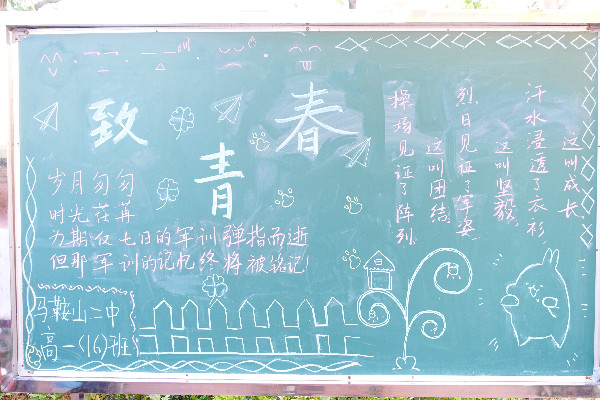 致青春
岁月匆匆
时光荏苒
为期仅七日的军训弹指而逝
但那军训的记忆终将被铭记!
马鞍山二中
高一(16)班
操场见证了阵列,
这叫团结.
烈日见证了军姿,
这叫坚毅.
汗水浸透了衣衫,
这叫成长.